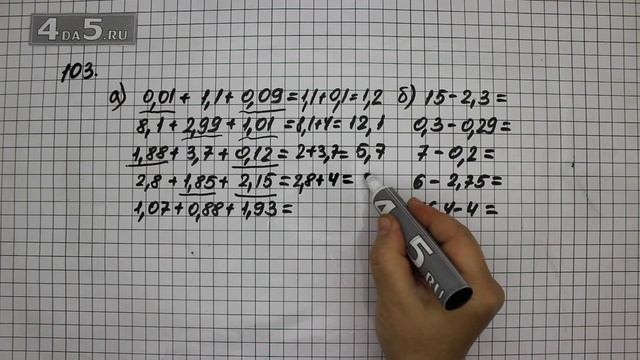 4 DA 5.RU
103.
а) 0,01 + 1,1 + 0,09 = 1,1 + 0,1 = 1,2 б) 15 - 2,3 =
8,1 + 2,99 + 1,01 = 8,1 + 4 = 12,1 0,3 - 0,29 =
1,88 + 3,7 + 0,12 = 2 + 3,7 = 5,7 7 - 0,2 =
2,8 + 1,85 + 2,15 = 2,8 + 4 = 6 - 2,75 =
1,07 + 0,88 + 1,93 = 4 - 4 =
4 5.RU